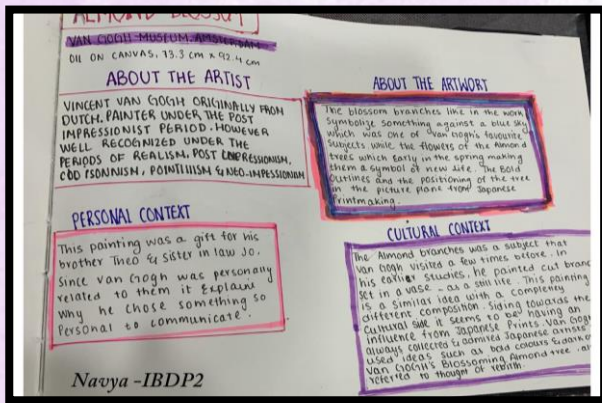 ALMOND BLOSSOM
VAN GOGH MUSEUM, AMSTERDAM
OIL ON CANVAS, 73.3 cm x 92.4 cm
ABOUT THE ARTIST
VINCENT VAN GOGH ORIGINALLY FROM
DUTCH. PAINTER UNDER THE POST
IMPRESSIONIST PERIOD. HOWEVER
WELL RECOGNIZED UNDER THE
PERIODS OF REALISM, POST IMPRESSIONISM,
POINTILLISM & NEO-IMPRESSIONISM
PERSONAL CONTEXT
This painting was a gift for his
brother Theo & sister in law Jo.
Since Van Gogh was personally
related to them it Explains
why he chose something so
Personal to communicate.
ABOUT THE ARTWORT
The blossom branches like in the work
symbolize something against a blue sky
which was one of Van Gogh's favourite
subjects while the flowers of the Almond
trees which early in the spring making
them a symbol of new life. The Bold
outlines and the positioning of the tree
in the picture plane from Japanese
Printmaking.
CULTURAL CONTEXT
The Almond branches was a subject that
Van Gogh visited a few times before. In
his earlier studies, he painted cut branc
set in a vase - as a still life. This painting
is a similar idea with a completely
different composition. Siding towards the
Cultural side it seems to be having an
influence from Japanese Prints. Van Gogh
always collected & admired Japanese artists
used ideas such as bold colours & dark o
Van GOGH'S Blossoming Almond tree. al
referred to thought of rebirth.
Navya -IBDP2